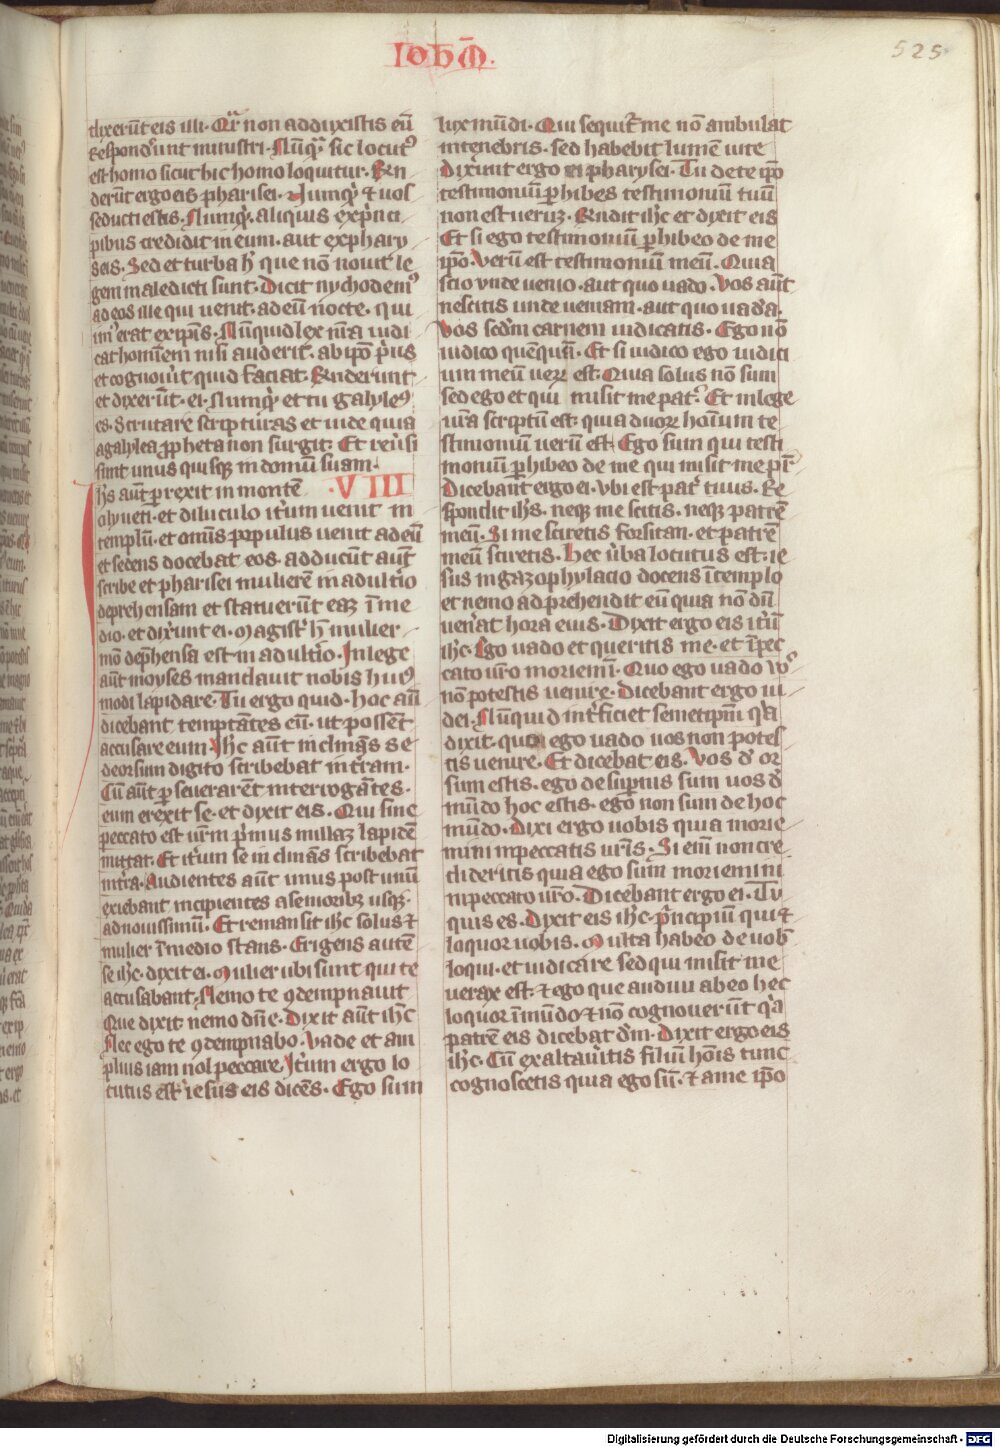 IohM̄.
525
dixerūt eis illi. Qr̄ non adduxistis eū
Respond'unt ministri. Nūq̄ sic locut᷒
est homo sicut hic homo loquitur. Rn
derūt ergo eis pharisei. Numq̄ ⁊ uos
seducti estis. Numq̄. aliquis exp̄nci
pibus credidit in eum. aut exphary
seis. Sed et turba h̄ que nō nouit le
gem maledicti sunt. Dicit nychodem᷒
ad eos ille qui uenit. ad eū nocte. qui
un᷒ erat ex ip̄is. Nūquid lex nr̄a iudi
cat hominem nisi audierit. ab ip̄o p̄us
et cognou'it quid faciat. Rnderunt
et dixerūt. ei. Numq̄ et tu galyle᷒
es. Scrutare scripturas et uide quia
a galylea ꝓpheta non surgit. Et reu'si
sunt unus quisqꝫ in domū suam.
Ihs aūt ꝑrexit in montē .VIII
olyueti. et diluculo it'um uenit in
templū. et omīs populus uenit ad eū
et sedens docebat eos. adducūt aūt
scribe et pharisei mulierē in adult'io
deprehensam et statuerūt eaꝫ ī me
dio. et dix'unt ei. Magist' h̄ mulier
mō dep̄hensa est in adult'io. In lege
aūt moyses mandauit nobis hui᷒
modi lapidare. Tu ergo quid. hoc aūt
dicebant temptātes eū. ut possēt
accusare eum. Ihc aūt inclinās se
deorsum digito scribebat in t'ram.
Cū aūt ꝑseuerarēt interrogātes.
eum erexit se. et dixit eis. Qui sine
peccato est ur̄m p'mus in illaꝫ lapidē
mittat. Et it'um se inclināS scribebat
in t'ra. Audientes aūt unus post unū
exiebant incipientes a senioribꝫ usqꝫ.
ad nouissimū. Et remansit ihc solus ⁊
mulier ī medio stans. Erigens autē
se ihc. dixit ei. Mulier ubi sunt qui te
accusabant. Nemo te ꝯdempnauit
Que dixit nemo dn̄e. Dixit aūt ihc
Nec ego te ꝯdempnabo. Vade et am
plius iam nol peccare. It'um ergo lo
cutus est iesus eis dicēs. Ego sum
lux mūdi. Qui sequit᷑ me nō ambulat
in tenebris. sed habebit lumē uite
Dix'unt ergo ei pharysei. Tu de te ip̄o
testimoniū ꝑhibes testimoniū tuū
non est ueruꝫ. Rndit ihc et dixit eis
Et si ego testimoniū ꝑhibeo de me
ip̄o. Verū est testimoniū meū. Quia
scio vnde uenio. aut quo uado. Vos aūt
nescitis unde ueniam. aut quo uada.
Vos scd'm carnem iudicatis. Ego nō
iudico quēquā. Et si iudico ego iudici
um meū ueꝝ est. Quia solus nō sum
sed ego et qui misit me pat'. Et in lege
ur̄a scriptū est. quia duoꝝ hoīum te
stimoniū uerū est. Ego sum qui testi
monium ꝑhibeo de me qui misit me pr̄
Dicebant ergo ei. Vbi est pat' tuus. Re
spondit ihs. neqꝫ me scitis. neqꝫ patrē
meū. Si me sciretis forsitan. et patrē
meū sciretis. Hec u'ba locutus est. ie
sus in gazophylacio docens ī templo
et nemo adprehendit eū quia nō dū
uen'at hora eius. Dixit ergo eis it'ū
ihc. Ego uado et queritis me. et ī pec
cato ur̄o moriem̄. Quo ego uado vo᷒
nō potestis uenire. Dicebant ergo iu
dei. Nūquid int'ficiet semetip̄m q'a
dixit. quo ego uado uos non potes
tis uenire. Et dicebat eis. Vos d' or
sum estis. ego de sup̄nis sum uos d'
mūdo hoc estis. ego non sum de hoc
mūdo. Dixi ergo uobis quia morie
mini in peccatis ur̄is. Si eni̅ non cre
dideritis quia ego sum moriemini
in peccato ur̄o. Dicebant ergo ei. Tu
quis es. Dixit eis ihc. p̄ncipiū qui ⁊
loquor uobis. Multa habeo de uob'
loqui. et iudicare sed qui misit me
uerax est. ⁊ ego que audiui ab eo hec
loquor ī mūdo ⁊ nō cognouerūt q'a
patrē eis dicebat dm̄. Dixit ergo eis
ihc. Cū exaltau'itis filiū hoīs tunc
cognoscetis quia ego sū. ⁊ a me ip̄o
Digitalisierung gefördert durch die Deutsche Forschungsgemeinschaft - DFG